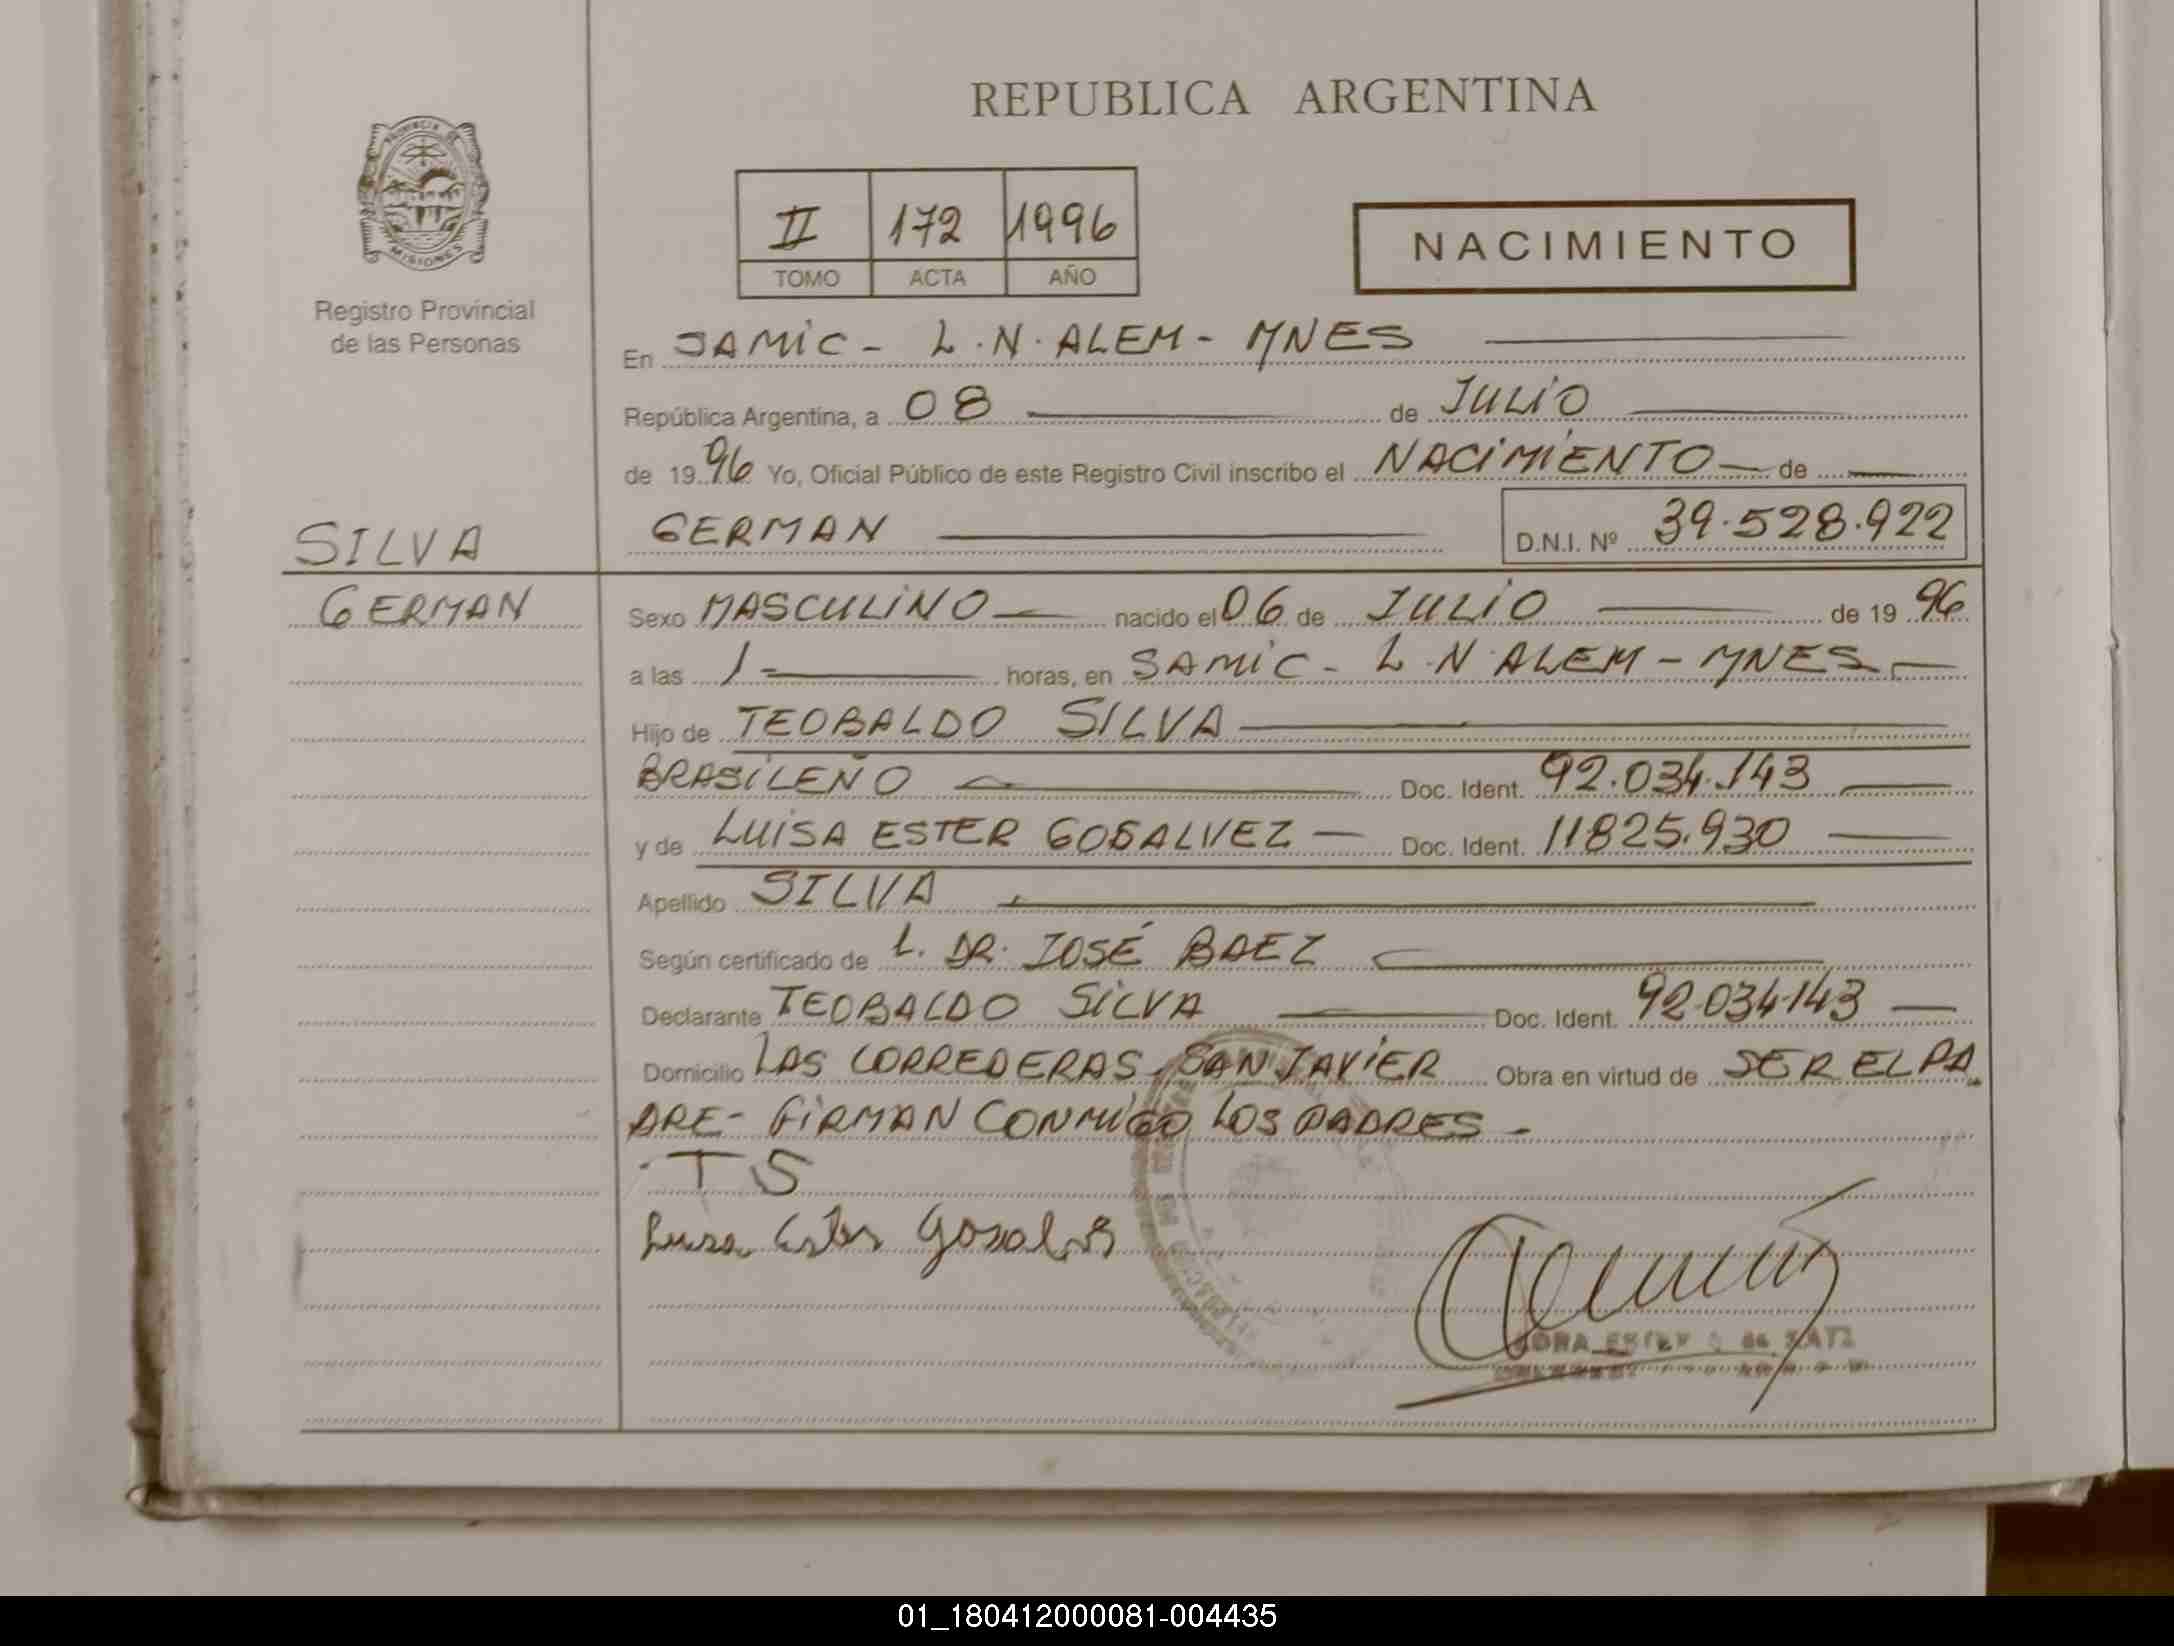 REPUBLICA ARGENTINA
PROVINCIA DE
MISIONES
Registro Provincial
de las Personas
II 172 1996
TOMO ACTA AÑO
NACIMIENTO
En SAMIC - L.N. ALEM - MNES
República Argentina, a 08 de JULIO
de 1996 Yo, Oficial Público de este Registro Civil inscribo el NACIMIENTO de
SILVA
GERMAN D.N.I. Nº 39.528.922
GERMAN
Sexo MASCULINO nacido el 06 de JULIO de 1996
a las 1- horas, en SAMIC - L.N. ALEM - MNES-
Hijo de TEOBALDO SILVA
BRASILEÑO Doc. Ident. 92.034.143
y de LUISA ESTER GOSALVEZ Doc. Ident. 11825.930
Apellido SILVA
Según certificado de L. DR. JOSÉ BAEZ
Declarante TEOBALDO SILVA Doc. Ident. 92.034.143
Domicilio LAS CORREDERAS - SAN JAVIER Obra en virtud de SER EL PA
DRE - FIRMAN CONMIGO LOS PADRES -
TS
Luisa Ester Gosalvez
01_180412000081-004435